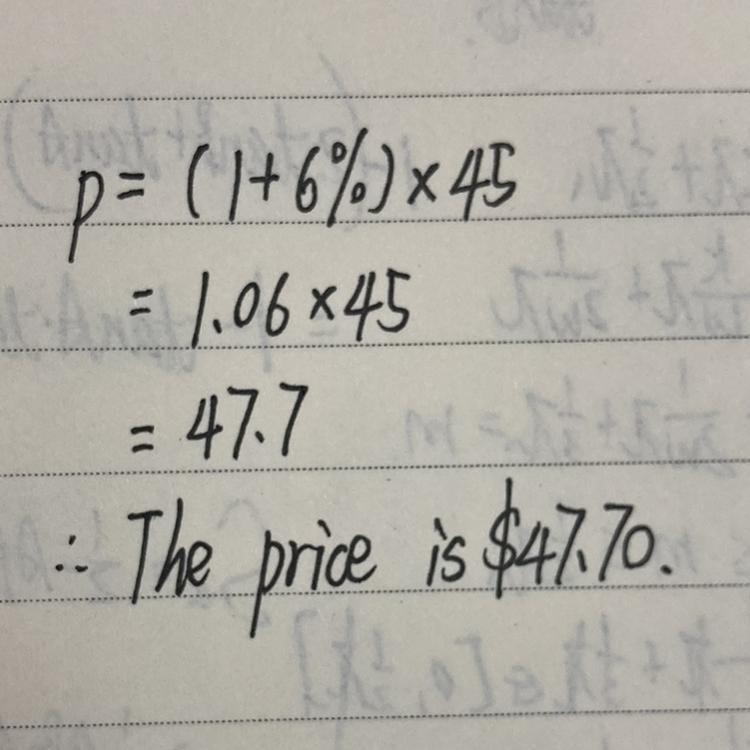 p = (1+6%) × 45
= 1.06 × 45
= 47.7
∴ The price is $47.70.